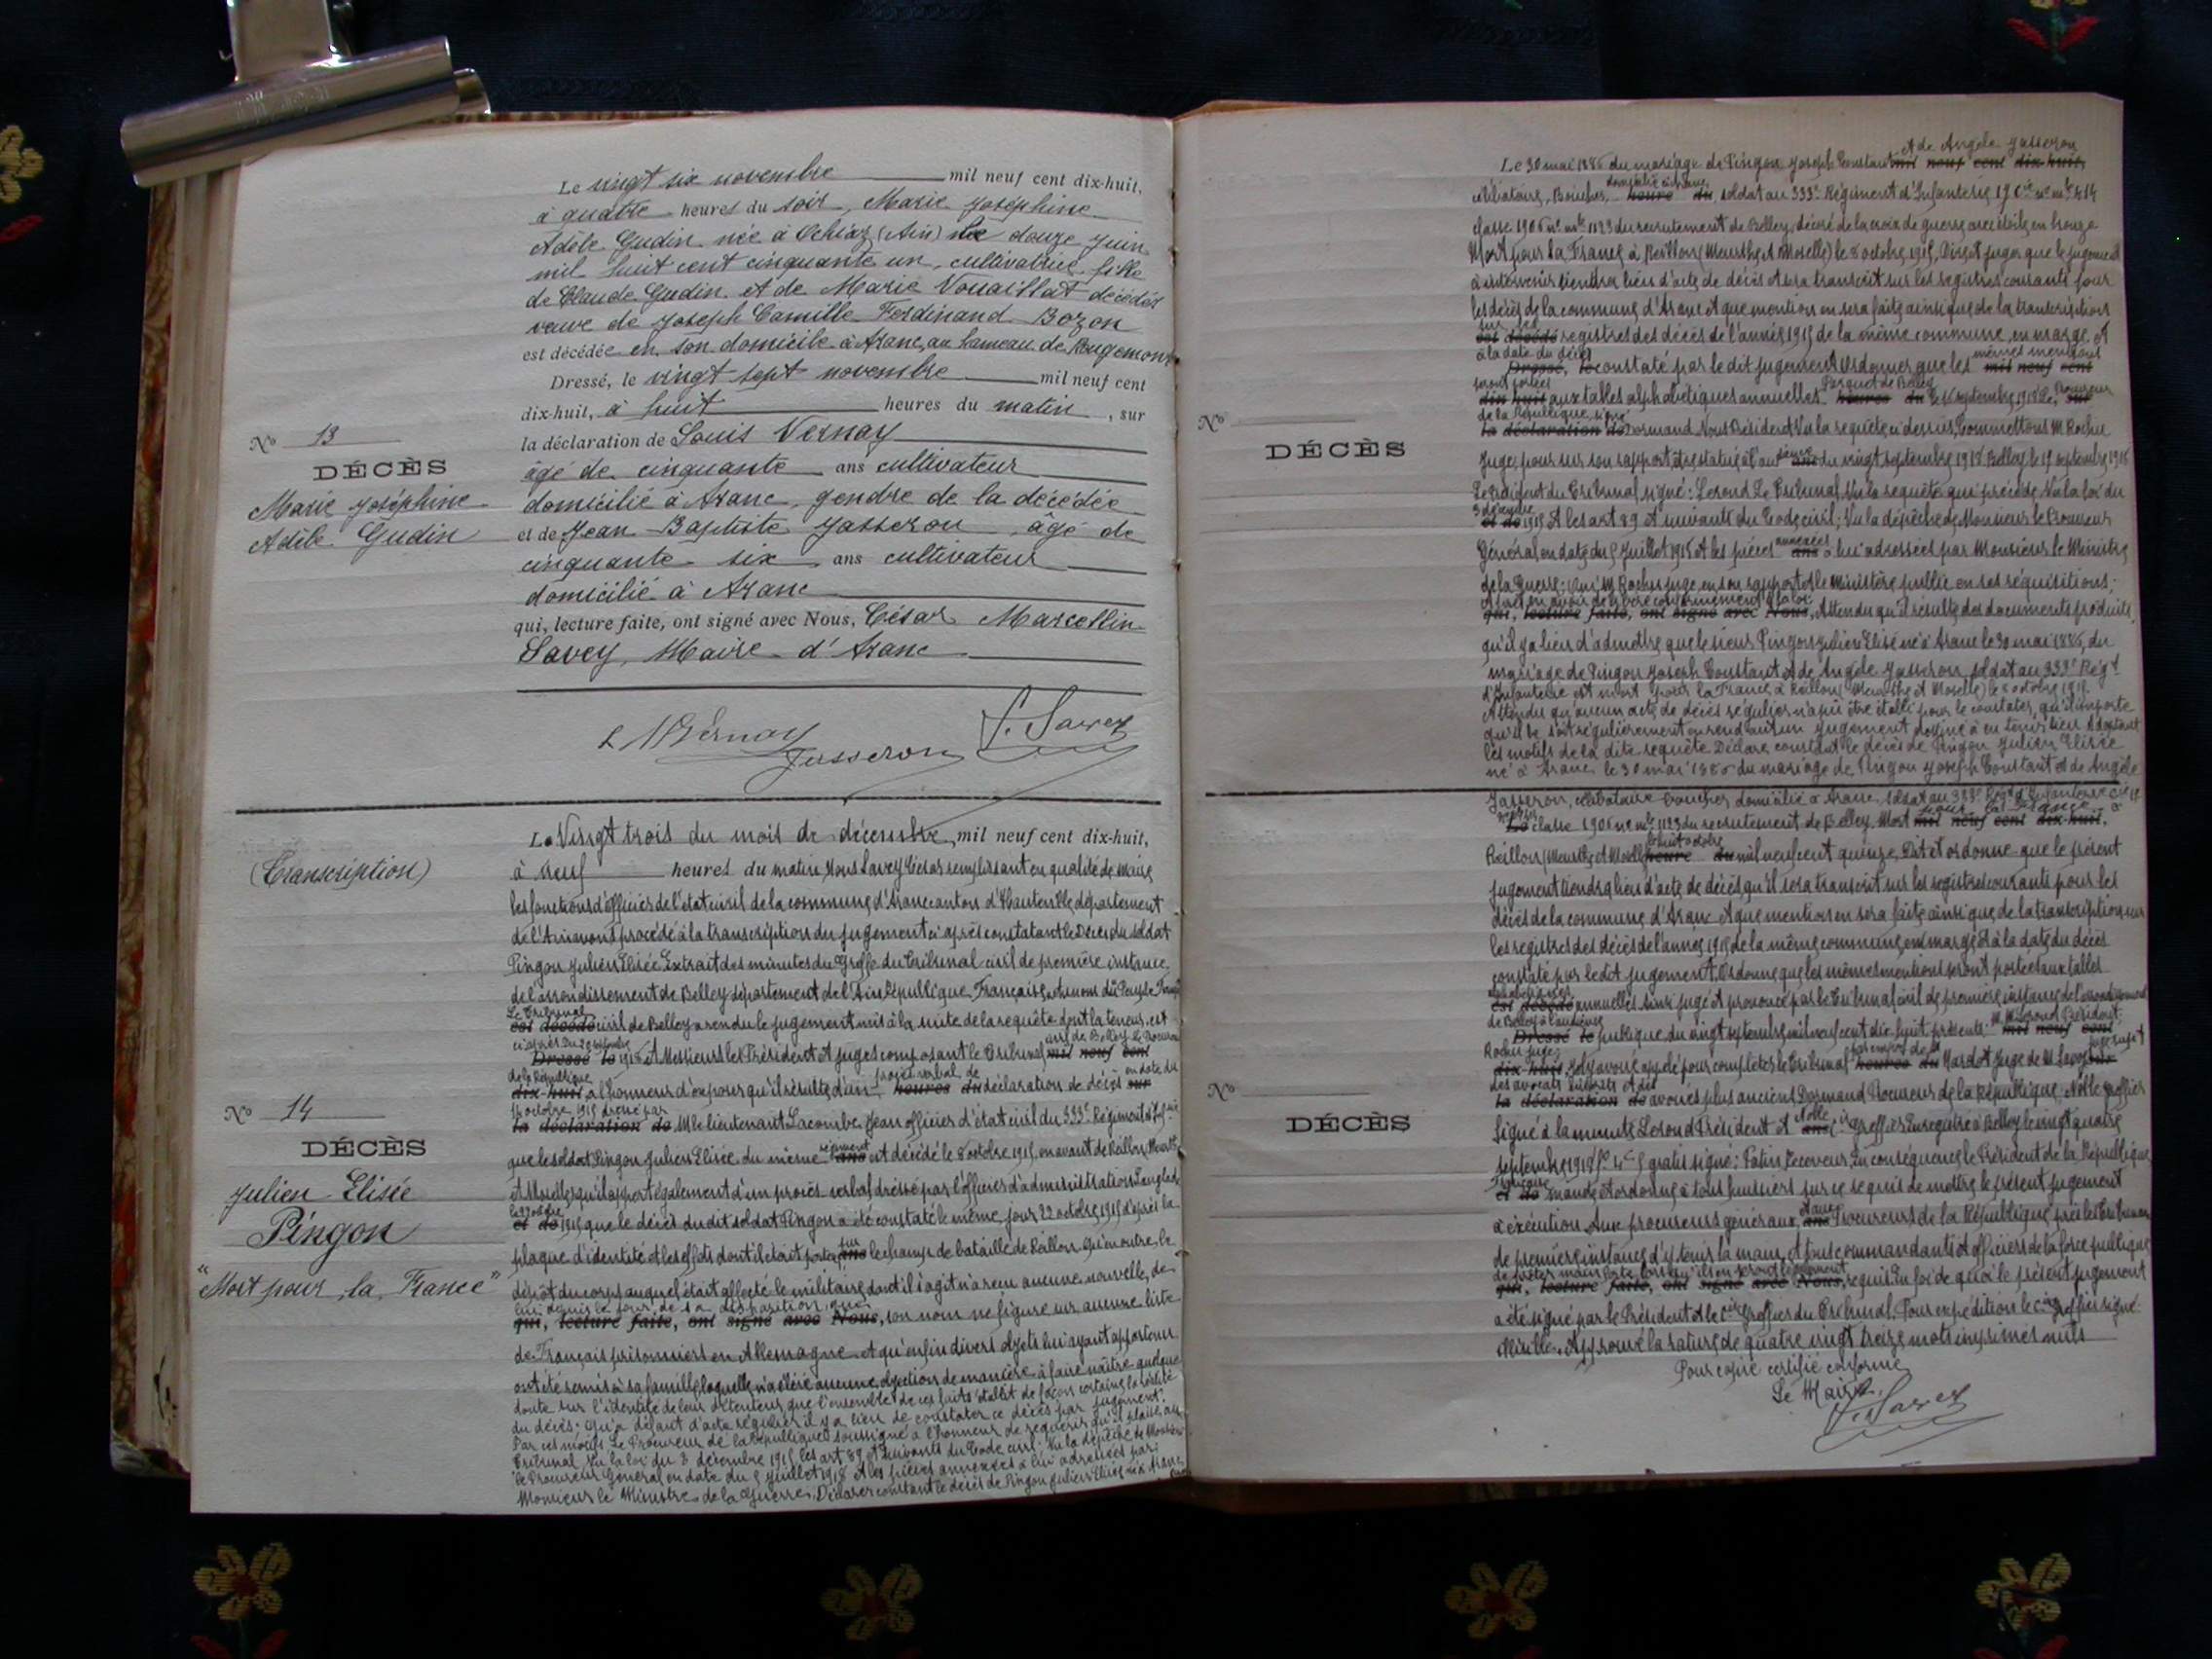 Le vingt six novembre mil neuf cent dix-huit,
à quatre heures du soir, Marie Joséphine
Adèle Gudin née à Ochiaz (Ain) le douze juin
mil huit cent cinquante un, cultivatrice, fille
de Claude Gudin et de Marie Vouaillat décédés
veuve de Joseph Camille Ferdinand Bozon
est décédée en son domicile à Aranc, au hameau de Rougemont
Dressé, le vingt sept novembre mil neuf cent
dix-huit, à huit heures du matin, sur
la déclaration de Louis Vernay
âgé de cinquante ans cultivateur
domicilié à Aranc, gendre de la décédée
et de Jean Baptiste Jasseron, âgé de
cinquante six ans cultivateur
domicilié à Aranc
qui, lecture faite, ont signé avec Nous, César Marcellin
Savey, Maire d'Aranc
Jasseron
C. Savey
No 13
DÉCÈS
Marie Joséphine
Adèle Gudin
(Transcription)
No 14
DÉCÈS
Julien Elisée
Pingon
"Mort pour la France"
Le Vingt trois du mois de décembre, mil neuf cent dix-huit,
à neuf heures du matin, Nous Savey César remplissant en qualité de Maire
les fonctions d'officier de l'état civil de la commune d'Aranc canton d'Hauteville département
de l'Ain avons procédé à la transcription du jugement ci après constatant le Décès du soldat
Pingon Julien Elisée. Extrait des minutes du Greffe du Tribunal civil de première instance
de l'arrondissement de Belley département de l'Ain République Française, au nom du Peuple Français
Le Tribunal
est décédé civil de Belley a rendu le jugement mis à la suite de la requête dont la teneur est
Dressé le 1918. A Messieurs les Président et Juges composant le Tribunal mil neuf cent
de la République procès verbal de en date du
dix-huit, a l'honneur d'exposer qu'il résulte d'un heures du déclaration de décès sur
octobre 1915 dressé par
la déclaration de M le lieutenant Lacombe Jean officier d'état civil du 333e Régiment d'Infie
que le soldat Pingon Julien Elisée du même régiment ans est décédé le 8 octobre 1915 en avant de Reillon, Meurthe
et Moselle, qu'il appert également d'un procès-verbal dressé par l'officier d'administration Langlade
et de 1915 que le décès du dit soldat Pingon a été constaté le même jour 22 octobre 1915 d'après la
plaque d'identité et les effets dont il était porteur sur ans le champ de bataille de Reillon. Qu'en outre, le
dépôt du corps auquel était affecté le militaire dont il s'agit n'a reçu aucune nouvelle de
lui depuis le jour de sa disparition, que
qui, lecture faite, ont signé avec Nous, son nom ne figure sur aucune liste
de Français prisonniers en Allemagne et qu'enfin divers objets lui ayant appartenu
ont été remis à sa famille, laquelle n'a élevé aucune objection de manière à faire naître quelque
doute sur l'identité de leur détenteur que l'ensemble de ces faits établit de façon certaine la réalité
du décès; Qu'à défaut d'acte régulier il y a lieu de constater ce décès par jugement.
Par ces motifs Le Procureur de la République soussigné a l'honneur de requérir qu'il plaise au
Tribunal, Vu la loi du 3 décembre 1915 les art 89 et suivants du Code civil. Vu la dépêche de Monsieur
le Procureur Général en date du 5 juillet 1918 et les pièces annexées à lui adressées par
Monsieur le Ministre de la Guerre. Déclarer constant le décès de Pingon Julien Elisée né à Aranc
et de Angèle Jasseron
Le 30 mai 1886 du mariage de Pingon Joseph Constant mil neuf cent dix-huit,
domicilié à Aranc
célibataire, Boucher, heures du soldat au 333e Régiment d'Infanterie
classe 1906 no mle 1123 du recrutement de Belley, décoré de la croix de guerre avec étoile en bronze
Mort pour la France à Reillon (Meurthe et Moselle) le 8 octobre 1915, Dire et juger que le jugement
à intervenir tiendra lieu d'acte de décès et sera transcrit sur les registres courants pour
les décès de la commune d'Aranc et que mention en sera faite ainsi que de la transcription
sur les
est décédé registres des décès de l'année 1915 de la même commune, en marge et
à la date du décès mêmes mentions
Dressé, le constaté par le dit jugement Ordonner que les mil neuf cent
seront portées Parquet de Belley Procureur
dix-huit aux tables alphabétiques annuelles heures du septembre 1918 Le sur
de la République, signé
la déclaration de Dormand. Nous Président Vu la requête ci dessus, Commettons M. Rochu
Juge, pour sur son rapport être statué à l'audience ans du vingt septembre 1918 Belley, le 19 septembre 1918
Le Président du Tribunal, signé: Leroud. Le Tribunal, Vu la requête qui précède. Vu la loi du
3 décembre
et de 1915 et les art 89 et suivants du Code civil; Vu la dépêche de Monsieur le Procureur
Général en date du 5 juillet 1918 et les pièces annexées ans à lui adressées par Monsieur le Ministre
de la Guerre; Ouï M. Rochu juge en son rapport et le Ministère public en ses réquisitions;
Après en avoir délibéré conformément à la loi:
qui, lecture faite, ont signé avec Nous, Attendu qu'il résulte des documents produits
qu'il y a lieu d'admettre que le sieur Pingon Julien Elisée né à Aranc le 30 mai 1886, du
mariage de Pingon Joseph Constant et de Angèle Jasseron, soldat au 333e Régt
d'Infanterie est mort pour la France à Reillon (Meurthe et Moselle) le 8 octobre 1915.
Attendu qu'aucun acte de décès régulier n'a pu être établi pour le constater, qu'il importe
qu'il le soit régulièrement en rendant un jugement destiné à en tenir lieu. Adoptant
les motifs de la dite requête Déclare constant le décès de Pingon Julien Elisée
né à Aranc le 30 mai 1886 du mariage de Pingon Joseph Constant et de Angèle
No
DÉCÈS
Jasseron, célibataire boucher domicilié à Aranc, soldat au 333e Régt d'Infanterie
pour la France
Le classe 1906 no mle 1123 du recrutement de Belley. Mort mil neuf cent dix-huit, à
le huit octobre
Reillon (Meurthe et Moselle) heures du mil neuf cent quinze, Dit et ordonne que le présent
jugement tiendra lieu d'acte de décès qu'il sera transcrit sur les registres courants pour les
décès de la commune d'Aranc et que mention en sera faite ainsi que de la transcription sur
les registres des décès de l'année 1915 de la même commune, en marge et à la date du décès
constaté par le dit jugement. Ordonne que les mêmes mentions seront portées aux tables
alphabétiques
est décédé annuelles ainsi jugé et prononcé par le Tribunal civil de première instance de l'arrondissement
de Belley à l'audience M.M. Leroud Président
Dressé le publique du vingt septembre mil neuf cent dix-huit présents: mil neuf cent
Rochu Juge,
dix-huit, avoué appelé pour compléter le Tribunal heures du Mardot Juge de sur
la déclaration de avoués plus anciens Dormand Procureur de la République, Noble greffier
Signé à la minute Leroud Président et Noble ans greffier Enregistré à Belley le vingt quatre
septembre 1918 gratis signé: Patin Receveur. En conséquence le Président de la République
Française
et de mande et ordonne à tous huissiers sur ce requis de mettre le présent jugement
à exécution, Aux procureurs généraux et aux ans Procureurs de la République près les Tribunaux
de première instance d'y tenir la main, A tous commandants et officiers de la force publique
de prêter main forte lorsqu'ils en seront légalement
qui, lecture faite, ont signé avec Nous, requis. En foi de quoi le présent jugement
a été signé par le Président et le greffier du Tribunal. Pour expédition le greffier signé:
Approuvé la rature de quatre vingt treize mots imprimés nuls
Pour copie certifié conforme
Le Maire,
C. Savey
No
DÉCÈS